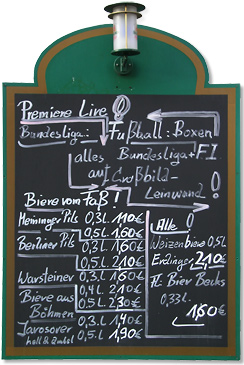 Premiere Live!
Bundesliga: Fußball: Boxen
alles Bundesliga + F1
auf Großbild-
Leinwand!
Biere vom Faß!
Memminger Pils 0,3L 1,10€
0,5L 1,60€
Berliner Pils 0,3L 1,60€
0,5L 2,10€
Warsteiner 0,3L 1,60€
0,4L 2,10€
Biere aus Böhmen 0,5L 2,30€
Jarosover 0,3L 1,40€
hell & dunkel 0,5L 1,90€
Alle
Weizenbiere 0,5L
Erdinger 2,10€
Fl. Bier Becks
0,33L
1,60€